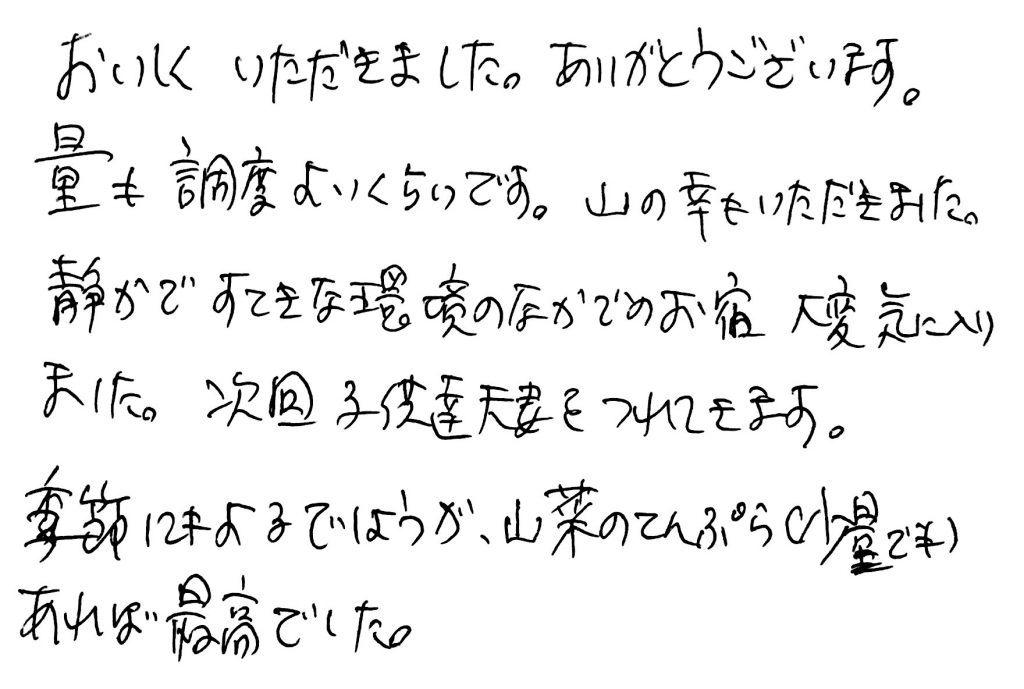 おいしく いただきました。ありがとうございます。
量も 調度よいくらいです。山の幸もいただきました。
静かで すてきな環境のなかでのお宿 大変気に入り
ました。次回 子供達夫妻をつれてきます。
季節にもよるでしょうが、山菜のてんぷら(少量でも)
あれば 最高でした。